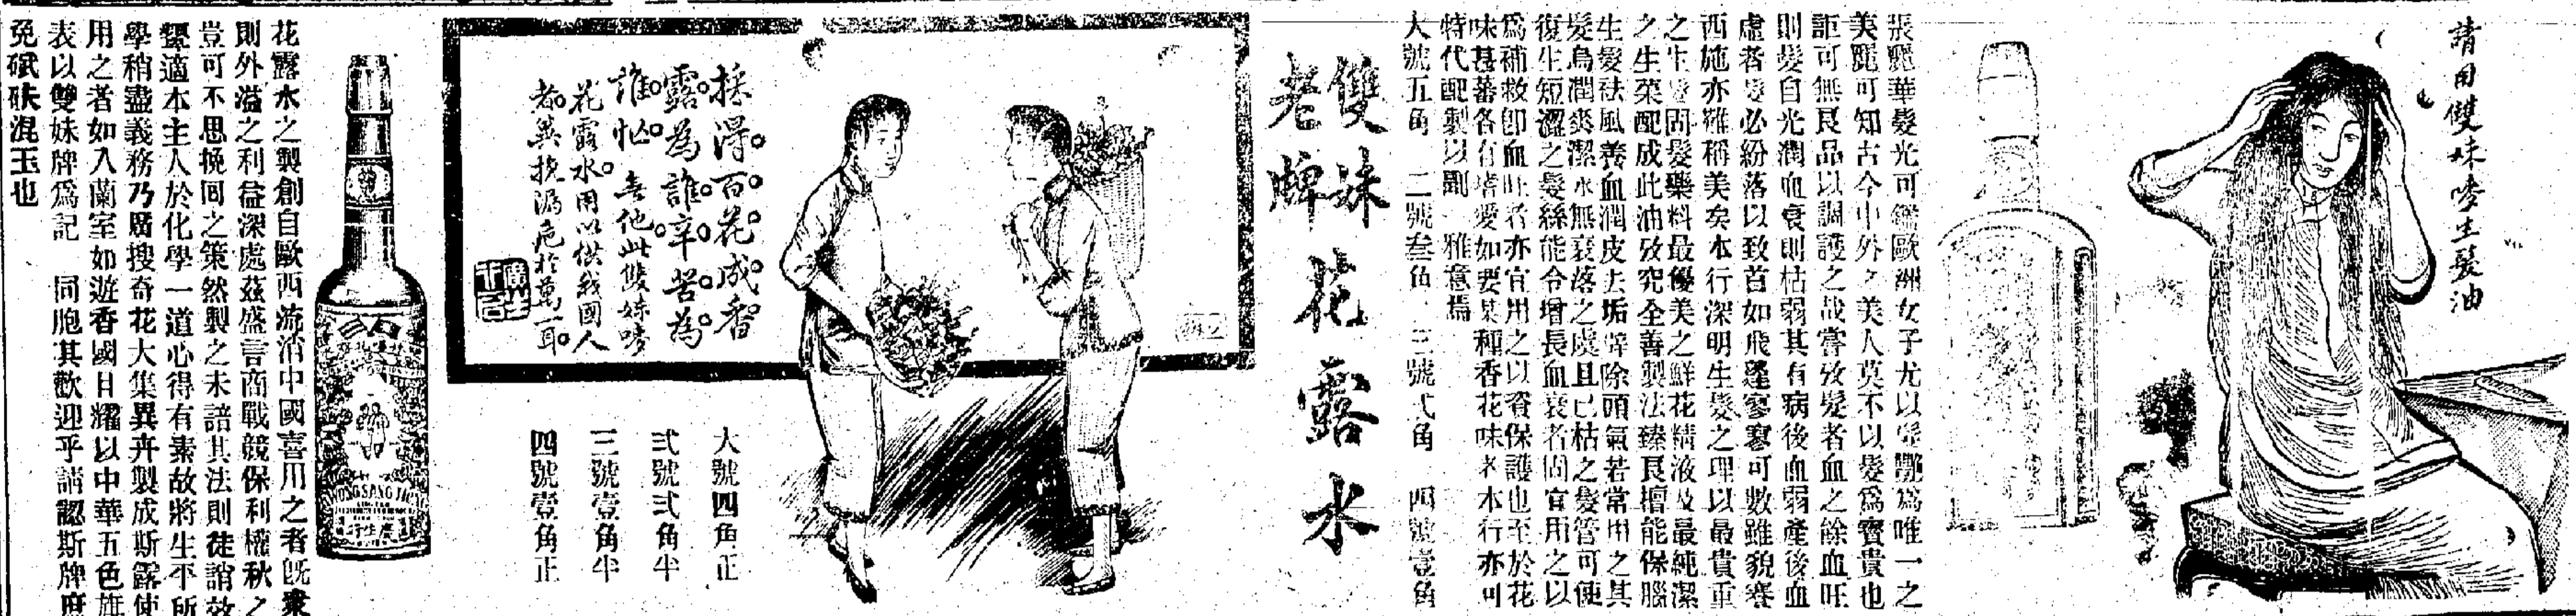 請用雙妹嘜生髮油
張麗華髮光可鑑歐洲女子尤以髮艷爲唯一之
美麗可知古今中外之美人莫不以髮爲寶貴也
詎可無良品以調護之哉嘗攷髮者血之餘血旺
則髮自光潤血衰則枯弱其有病後血弱產後血
虛者髮必紛落以致首如飛蓬寥寥可數雖貌賽
西施亦難稱美矣本行深明生髮之理以最貴重
之生髮固髮藥料最優美之鮮花精液及最純潔
之生菜配成此油攷究全善製法臻良擅能保腦
生髮祛風養血潤皮去垢辟除頭氣若常用之其
髮烏潤爽潔永無衰落之虞且已枯之髮管可使
復生短澀之髮絲能令增長血衰者固宜用之以
爲補救卽血旺者亦宜用之以資保護也至於花
味甚蕃各有嗜愛如要某種香花味者本行亦可
特代配製以副 雅意焉
大號五角 二號叁角 三號弍角 四號壹角
雙妹
老牌
花露水
採得百花成香
露爲誰辛苦爲
誰忙無他此雙妹嘜
花露水用以供我國人
者冀挽漏卮於萬一耳
廣生
大號四角正
弍號弍角半
三號壹角半
四號壹角正
WONG SANG
廣生行
花露水之製創自歐西流消中國喜用之者旣衆
則外溢之利益深處茲盛言商戰競保利權秋之
豈可不思挽囘之策然製之未諳其法則徒誚效
顰適本主人於化學一道心得有素故將生平所
學稍盡義務乃廣搜奇花大集異卉製成斯露使
用之者如入蘭室如遊香國日耀以中華五色旗
表以雙妹牌爲記 同胞其歡迎乎請認斯牌庶
免碔砆混玉也